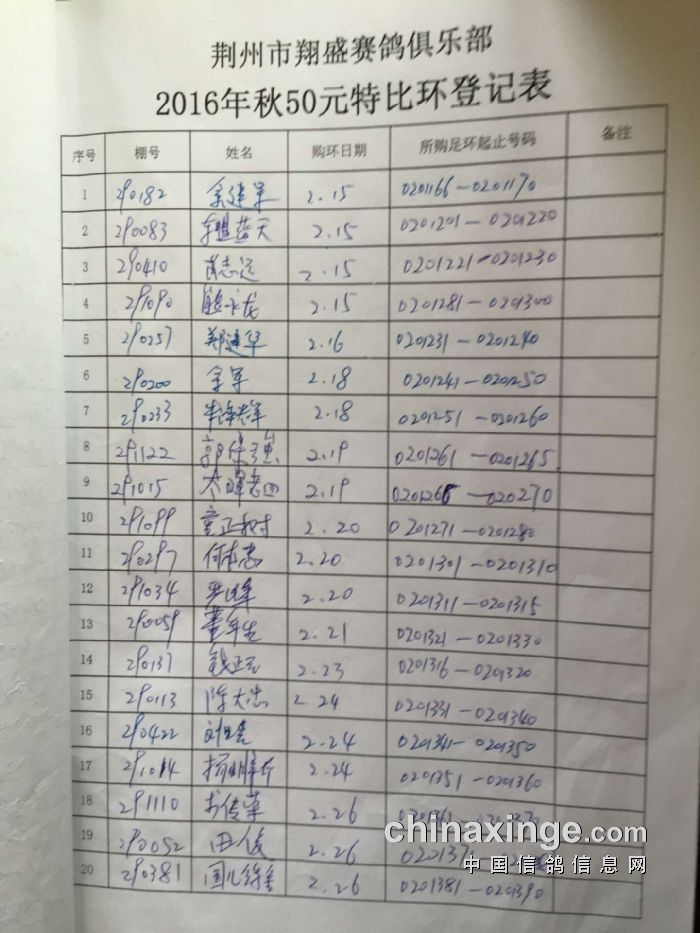 荆州市翔盛赛鸽俱乐部
2016年秋50元特比环登记表
序号 棚号 姓名 购环日期 所购足环起止号码 备注
1 290182 余建军 2.15 0201166-0201170
2 290083 车盟蓝天 2.15 0201201-0201220
3 290410 肖志运 2.15 0201221-0201230
4 291090 熊永龙 2.15 0201281-0201300
5 290257 郑建华 2.16 0201231-0201240
6 290200 余军 2.18 0201241-0201250
7 290233 2.18 0201251-0201260
8 291122 郭保强 2.19 0201261-0201265
9 291015 2.19 0201266-020270
10 291099 童正树 2.20 0201271-0201280
11 290297 何本志 2.20 0201301-0201310
12 291034 2.20 0201311-0201315
13 290059 董年生 2.21 0201321-0201330
14 290137 钱正云 2.23 0201316-0201320
15 290113 陈大志 2.24 0201331-0201340
16 290422 2.24 0201341-0201350
17 291014 2.24 0201351-0201360
18 291110 2.26
19 290052 田俊 2.26
20 290381 2.26 0201381-0201390
chinaxinge.com
中国信鸽信息网